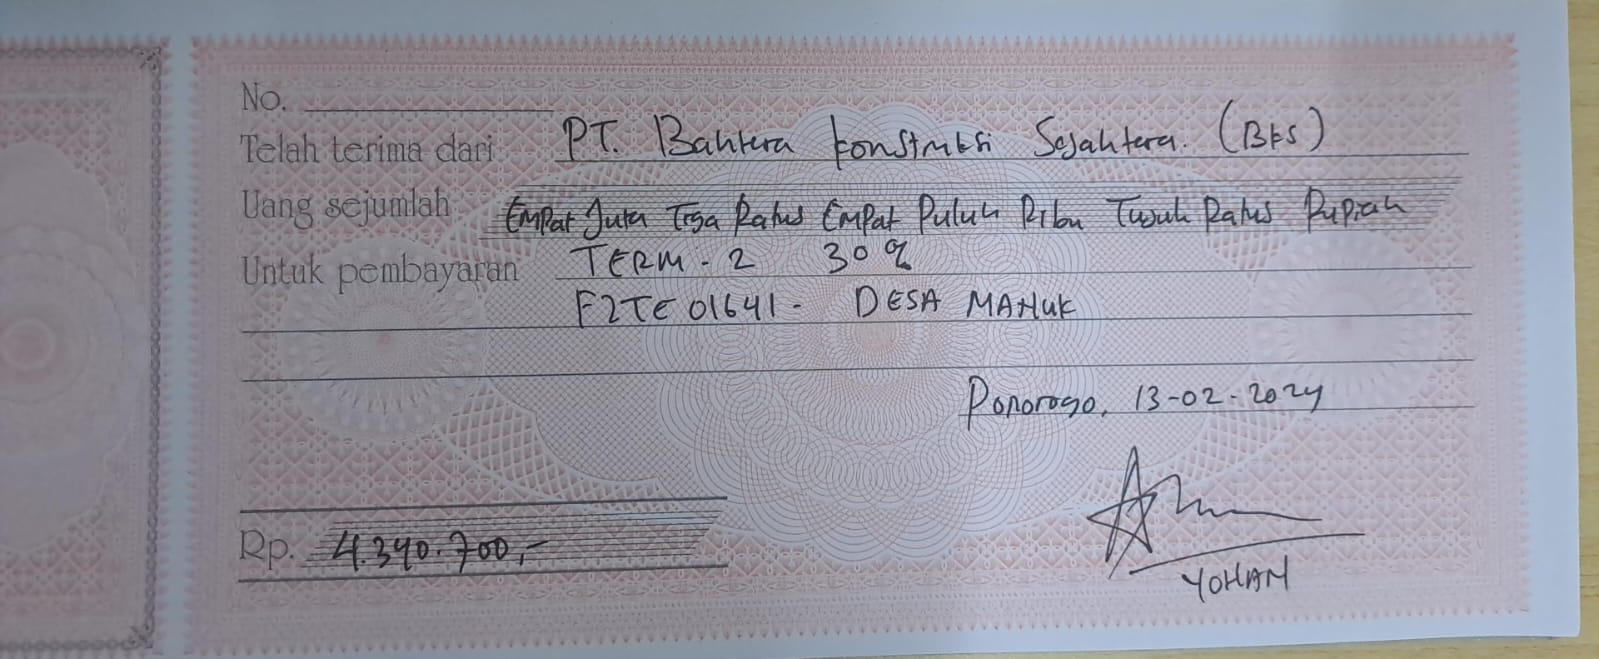 No.
Telah terima dari PT. Bahtera Konstruksi Sejahtera. (BKS)
Uang sejumlah Empat Juta Tiga Ratus Empat Puluh Ribu Tujuh Ratus Rupiah
Untuk pembayaran TERM - 2 30 %
F2TE01641 - DESA MANUK
Ponorogo, 13-02-2024
Rp. 4.340.700,-
YOHAN